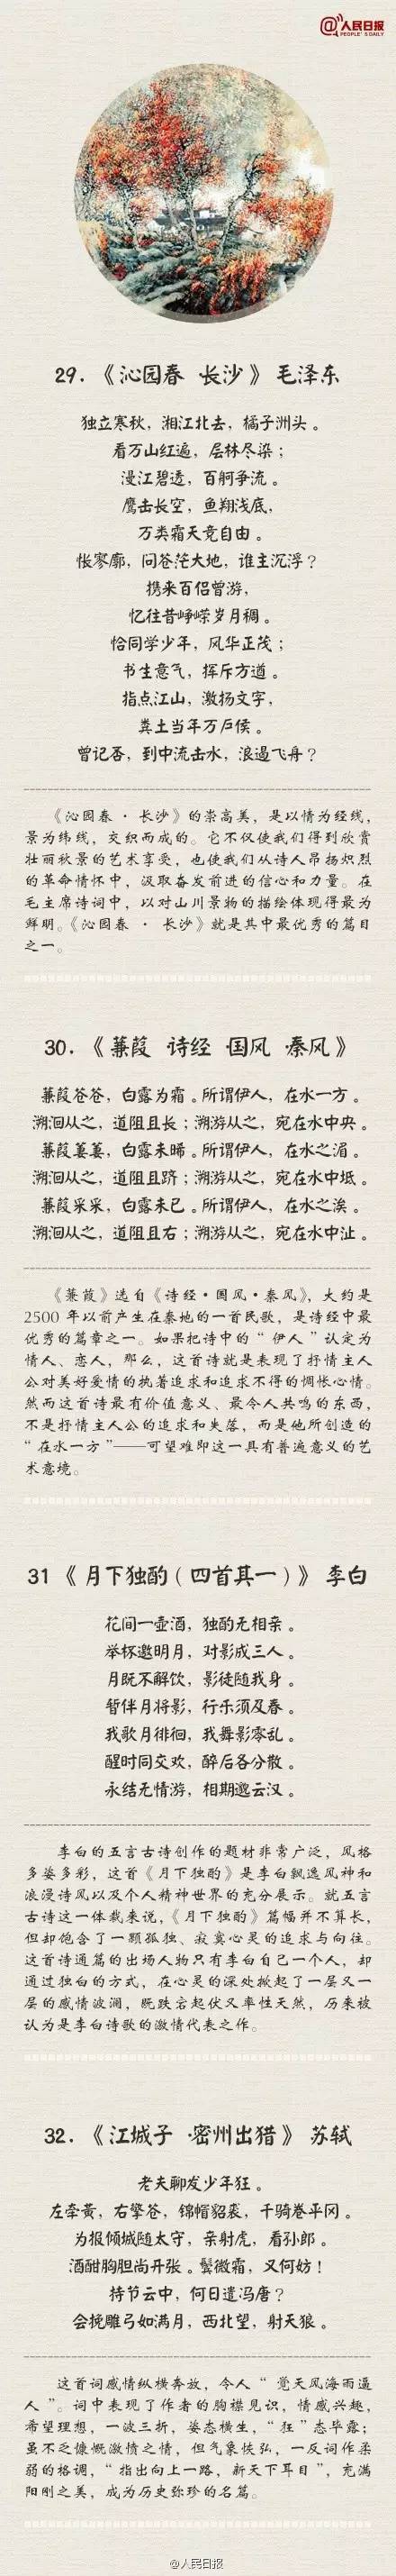 @人民日报
PEOPLE'S DAILY
29.《沁园春 ·长沙》 毛泽东
独立寒秋，湘江北去，橘子洲头。
看万山红遍，层林尽染；
漫江碧透，百舸争流。
鹰击长空，鱼翔浅底，
万类霜天竞自由。
怅寥廓，问苍茫大地，谁主沉浮？
携来百侣曾游，
忆往昔峥嵘岁月稠。
恰同学少年，风华正茂；
书生意气，挥斥方遒。
指点江山，激扬文字，
粪土当年万户侯。
曾记否，到中流击水，浪遏飞舟？
《沁园春 · 长沙》的崇高美，是以情为经线，
景为纬线，交织而成的。它不仅使我们得到欣赏
壮丽秋景的艺术享受，也使我们从诗人昂扬炽烈
的革命情怀中，汲取奋发前进的信心和力量。在
毛主席诗词中，以对山川景物的描绘体现得最为
鲜明。《沁园春 · 长沙》就是其中最优秀的篇目
之一。
30.《蒹葭 ·诗经 ·国风 ·秦风》
蒹葭苍苍，白露为霜。所谓伊人，在水一方。
溯洄从之，道阻且长；溯游从之，宛在水中央。
蒹葭萋萋，白露未晞。所谓伊人，在水之湄。
溯洄从之，道阻且跻；溯游从之，宛在水中坻。
蒹葭采采，白露未已。所谓伊人，在水之涘。
溯洄从之，道阻且右；溯游从之，宛在水中沚。
《蒹葭》选自《诗经·国风·秦风》，大约是
2500 年以前产生在秦地的一首民歌，是诗经中最
优秀的篇章之一。如果把诗中的“伊人”认定为
情人、恋人，那么，这首诗就是表现了抒情主人
公对美好爱情的执著追求和追求不得的惆怅心情。
然而这首诗最有价值意义、最令人共鸣的东西，
不是抒情主人公的追求和失落，而是他所创造的
“在水一方”——可望难即这一具有普遍意义的艺
术意境。
31《月下独酌（四首其一）》 李白
花间一壶酒，独酌无相亲。
举杯邀明月，对影成三人。
月既不解饮，影徒随我身。
暂伴月将影，行乐须及春。
我歌月徘徊，我舞影零乱。
醒时同交欢，醉后各分散。
永结无情游，相期邈云汉。
李白的五言古诗创作的题材非常广泛，风格
多姿多彩，这首《月下独酌》是李白飘逸风神和
浪漫诗风以及个人精神世界的充分展示。就五言
古诗这一体裁来说，《月下独酌》篇幅并不算长，
但却饱含了一颗孤独、寂寞心灵的追求与向往。
这首诗通篇的出场人物只有李白自己一个人，却
通过独白的方式，在心灵的深处掀起了一层又一
层的感情波澜，既跌宕起伏又率性天然，历来被
认为是李白诗歌的激情代表之作。
32.《江城子 ·密州出猎》 苏轼
老夫聊发少年狂。
左牵黄，右擎苍，锦帽貂裘，千骑卷平冈。
为报倾城随太守，亲射虎，看孙郎。
酒酣胸胆尚开张。鬓微霜，又何妨！
持节云中，何日遣冯唐？
会挽雕弓如满月，西北望，射天狼。
这首词感情纵横奔放，令人“觉天风海雨逼
人”。词中表现了作者的胸襟见识，情感兴趣，
希望理想，一波三折，姿态横生，“狂”态毕露；
虽不乏慷慨激愤之情，但气象恢弘，一反词作柔
弱的格调，“指出向上一路，新天下耳目”，充满
阳刚之美，成为历史弥珍的名篇。
@人民日报